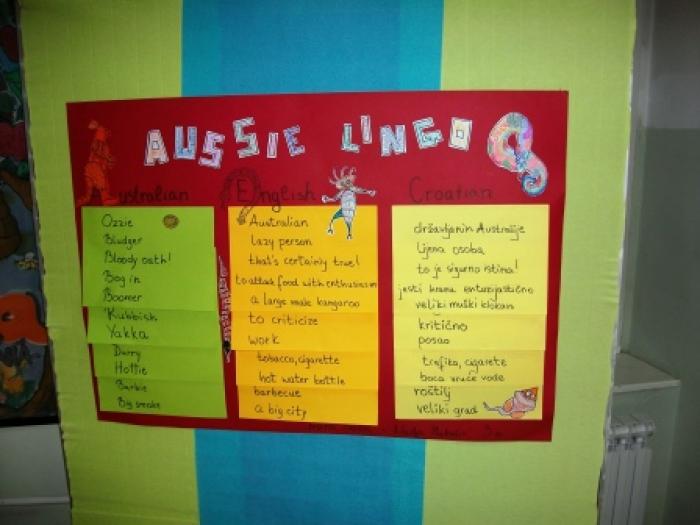 AUSSIE LINGO
Australian English Croatian
Ozzie
Bludger
Bloody oath!
Bog in
Boomer
Rubbish
Yakka
Durry
Hottie
Barbie
Big smoke
Australian
lazy person
that's certainly true!
to attack food with enthusiasm
a large male kangaroo
to criticize
work
tobacco, cigarette
hot water bottle
barbecue
a big city
državljanin Australije
lijena osoba
to je sigurno istina!
jesti hranu entuzijastično
veliki muški klokan
kritično
posao
trafika, cigarete
boca vruće vode
roštilj
veliki grad